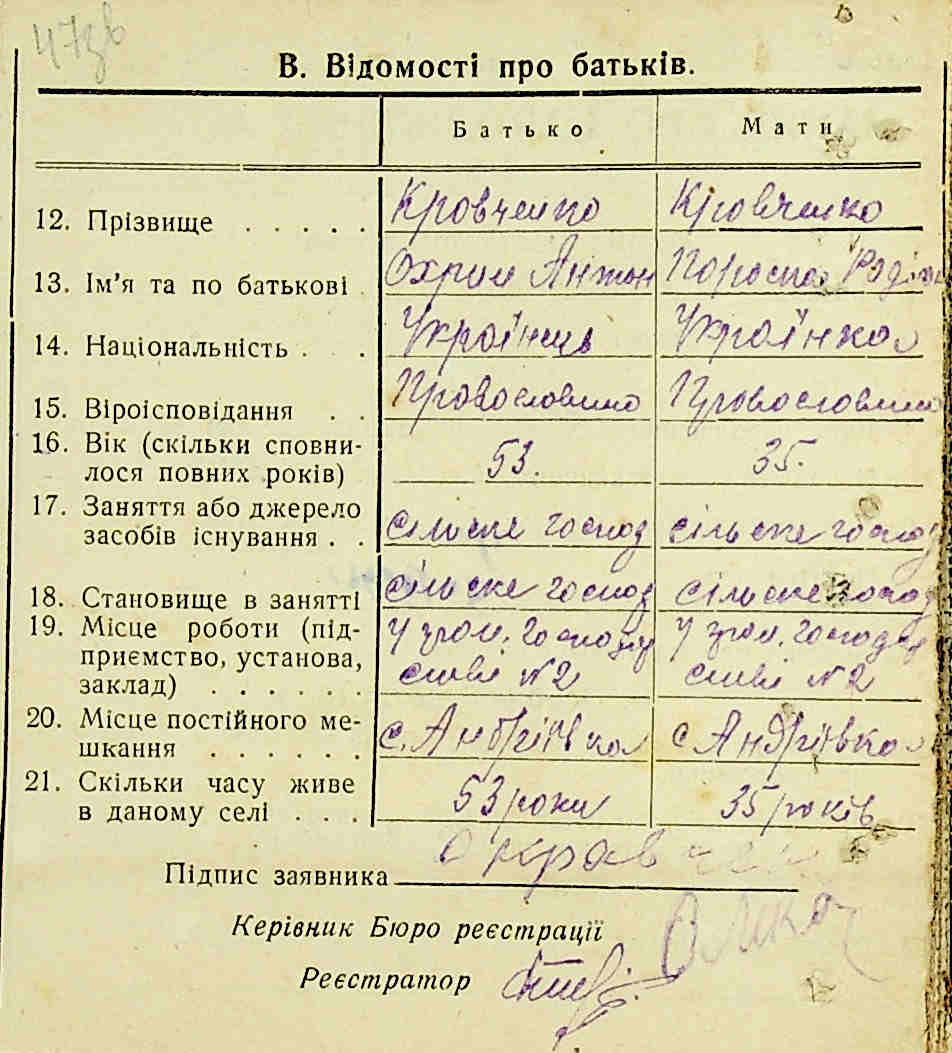 47зв
В. Відомості про батьків.
Батько Мати
12. Прізвище . . . . . Кровченко Кровченко
13. Ім'я та по батькові . Охрим Антон Пороска Радіон
14. Національність . . Українець Українка
15. Віроісповідання . . Провославно Провославно
16. Вік (скільки сповни-
лося повних років) 53. 35.
17. Заняття або джерело
засобів існування . . сільске господ сільске господ
18. Становище в занятті сільске господ сільске господ
19. Місце роботи (під- У гром. господар У гром. господар
приємство, установа, стві №2 стві №2
заклад) . . . . . .
20. Місце постійного ме-
шкання . . . . . . с. Андріївка с Андріївка
21. Скільки часу живе
в даному селі . . . 53 роки 35 років
Підпис заявника О Кравчен
Керівник Бюро реєстрації
Реєстратор